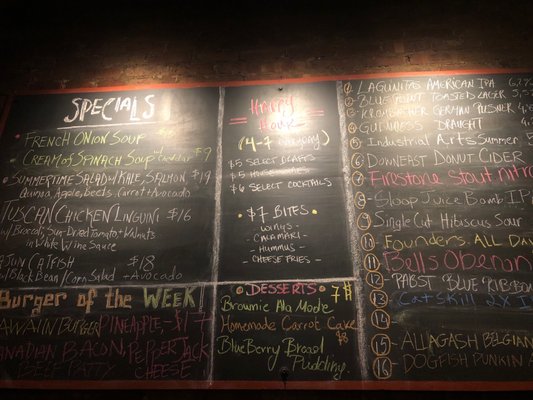 SPECIALS
FRENCH ONION SOUP
CREAM of SPINACH SOUP w/ cheddar $7
SUMMERTIME SALAD w/ KALE, SALMON $19
Quinoa, Apple, Beets, Carrot + Avocado
TUSCAN CHICKEN LINGUINI $16
w/ Broccoli, Sun-Dried Tomato + Walnuts
in White Wine Sauce
AJUN CATFISH $18
Black Bean/Corn Salad + Avocado
Burger of the WEEK!
AWAIIN BURGER PINEAPPLE - $17
ANADIAN BACON, PEPPER JACK
BEEF PATTY CHEESE
Happy
Hour
(4-7
$5 SELECT DRAFTS
$5
$6 SELECT COCKTAILS
$7 BITES
- WINGS -
- CALAMARI -
- HUMMUS -
- CHEESE FRIES -
DESSERTS 7$
Brownie Ala Mode
Homemade Carrot Cake
$8
BlueBerry Bread
Pudding
1 LAGUNITAS AMERICAN IPA 6.2%
2 BLUE POINT TOASTED LAGER 5.5
3 KROMBACHER GERMAN PILSNER 4.8
4 GUINNESS DRAUGHT 4
5 Industrial Arts Summer 5
6 DOWNEAST DONUT CIDER
7 FIRESTONE STOUT nitro
8 Gloop Juice Bomb IPA
9 Single Cut Hibiscus Sour
10 Founders ALL DA
11 Bells Oberon
12 PABST BLUE RIBBON
13 CatSkill 2X I
14
15 - ALLAGASH BELGIAN
16 - DOGFISH PUNKIN A